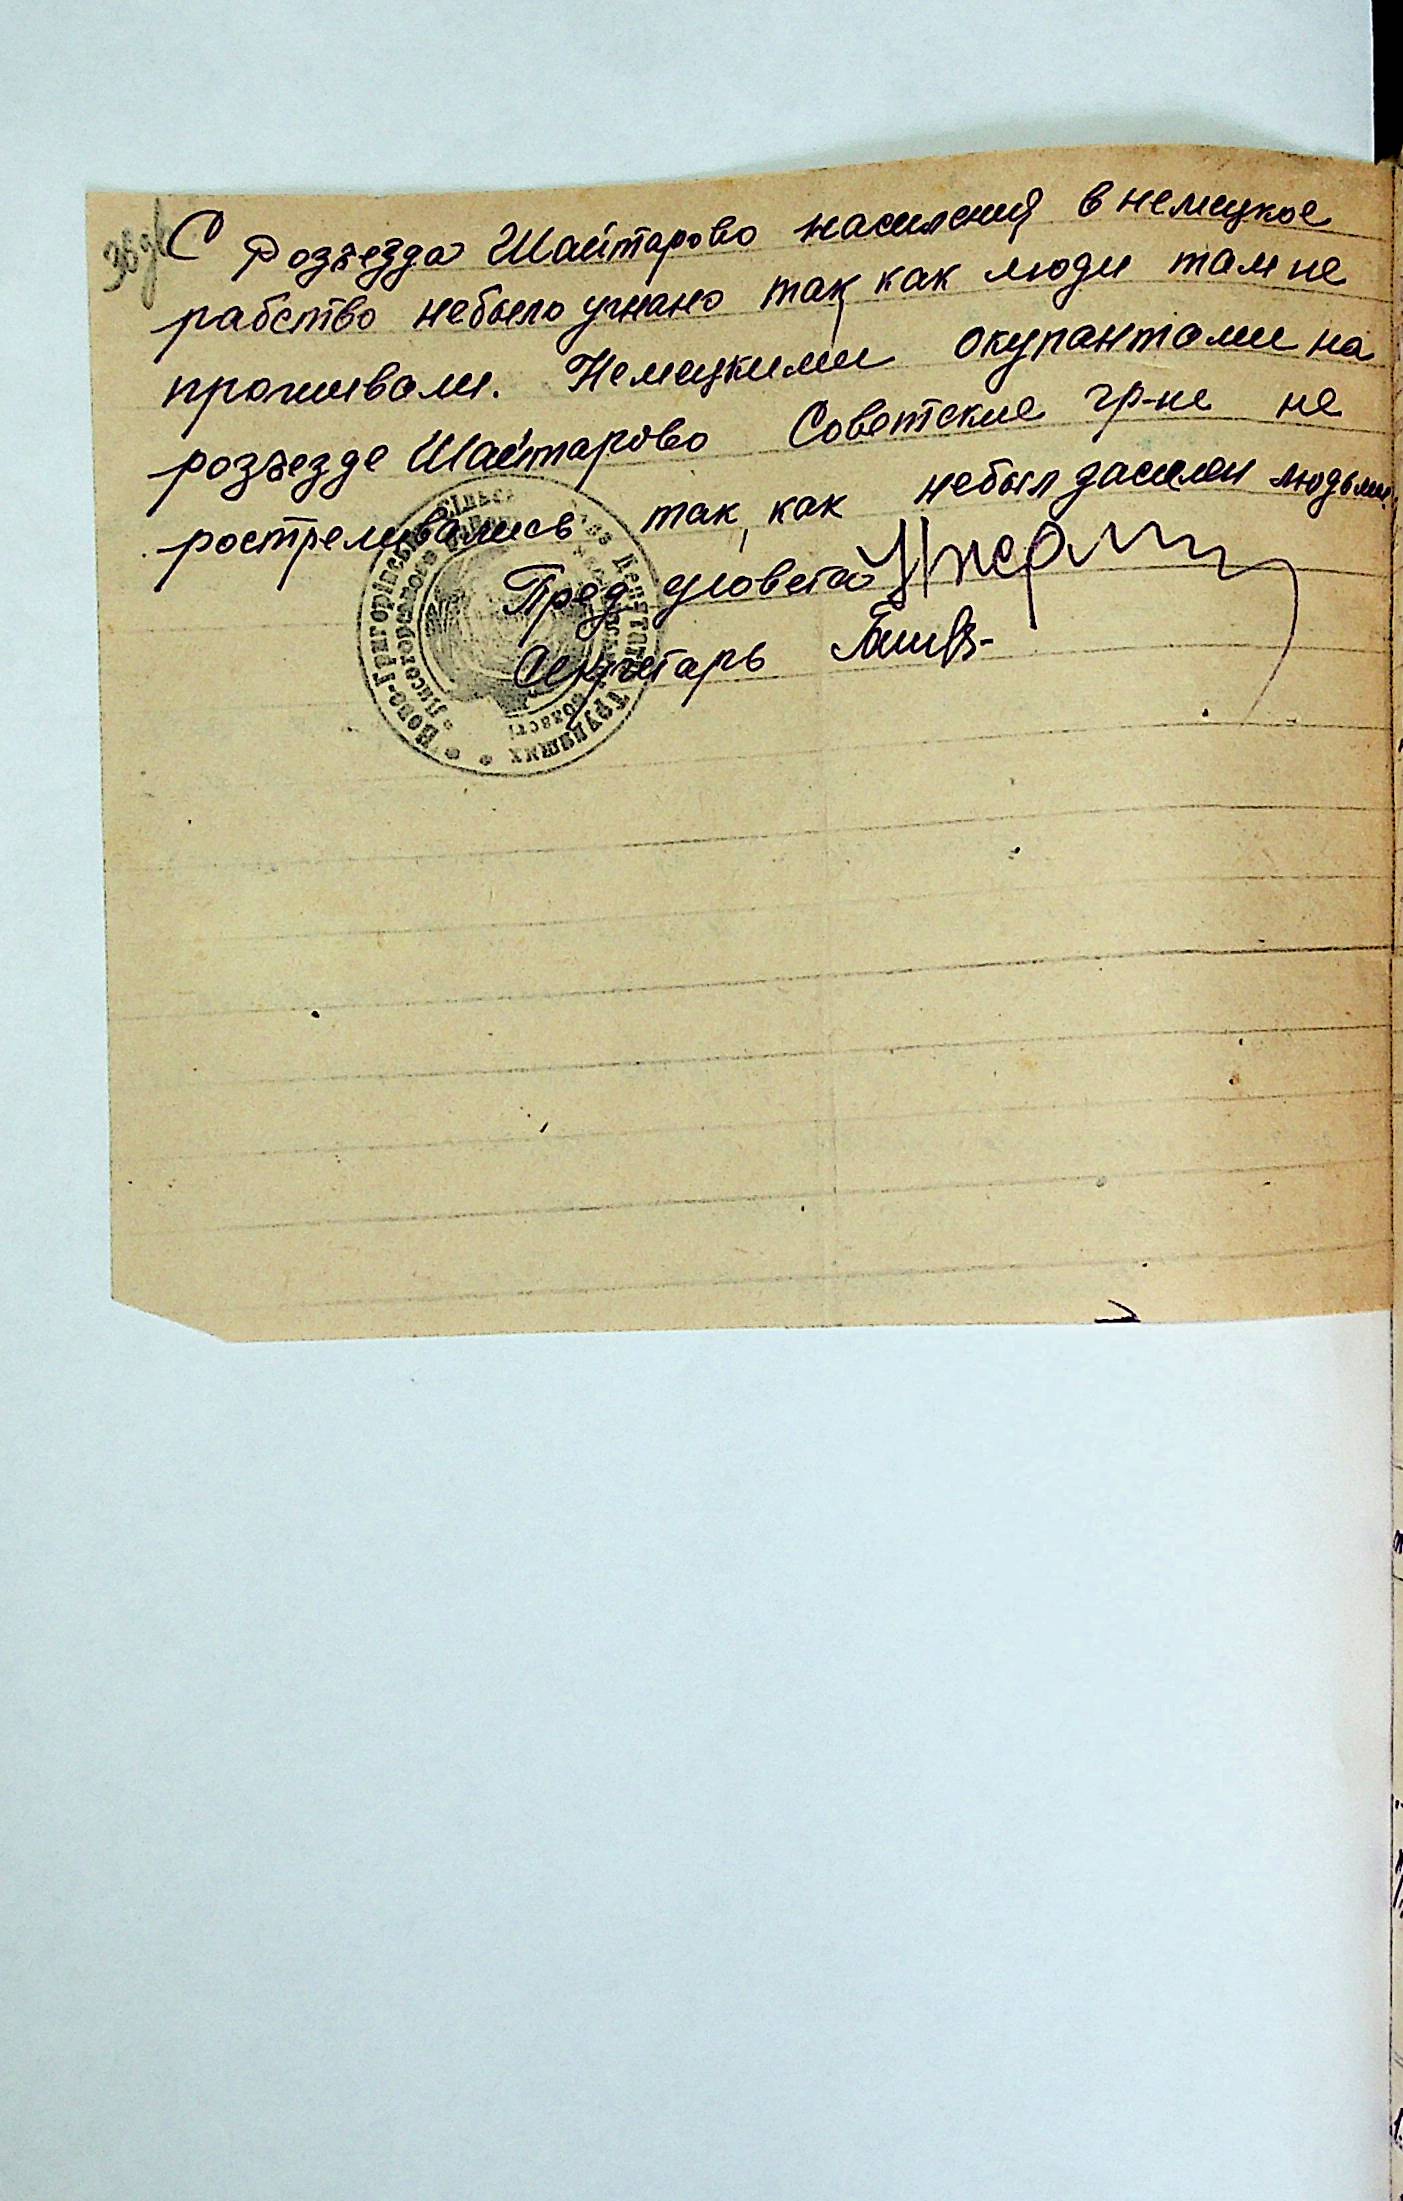 38 зв
С розъезда Шайтарово насиления в немецкое
рабство небыло угнано так как люди там не
проживали. Немецкими окупантами на
розъезде Шайтарово Советские гр-не не
рострелювались так, как небыл заселен людьми.
Пред. с/совета
Секретарь
Ново-Григорівська Сільсь Депутатів Трудящих
Лисогорського області